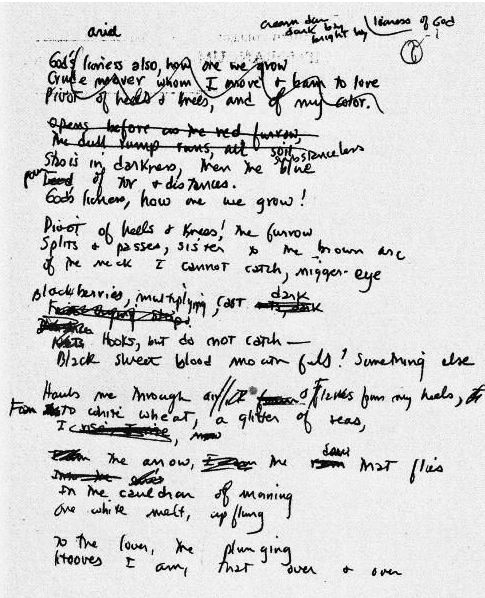 ariel
lioness of God
God's lioness also, how one we grow
Crude mover whom I move & learn to love
Pivot of heels & knees, and of my color.
Opens before us the red furrow,
The dull rump runs, all soil
Stasis in darkness, then the substanceless blue
pour of tor & distances.
God's lioness, how one we grow!
Pivot of heels & knees! The furrow
Splits & passes, sister to the brown arc
of the neck I cannot catch, nigger-eye
Blackberries, multiplying, cast dark
Hooks, but do not catch —
Black sweet blood mouthfuls! Something else
Hauls me through air // flakes from my heels,
to white wheat, a glitter of seas,
I
the arrow, the dew that flies
In the cauldron of morning
One white melt, upflung
To the lover, the plunging
Hooves I am, that over & over